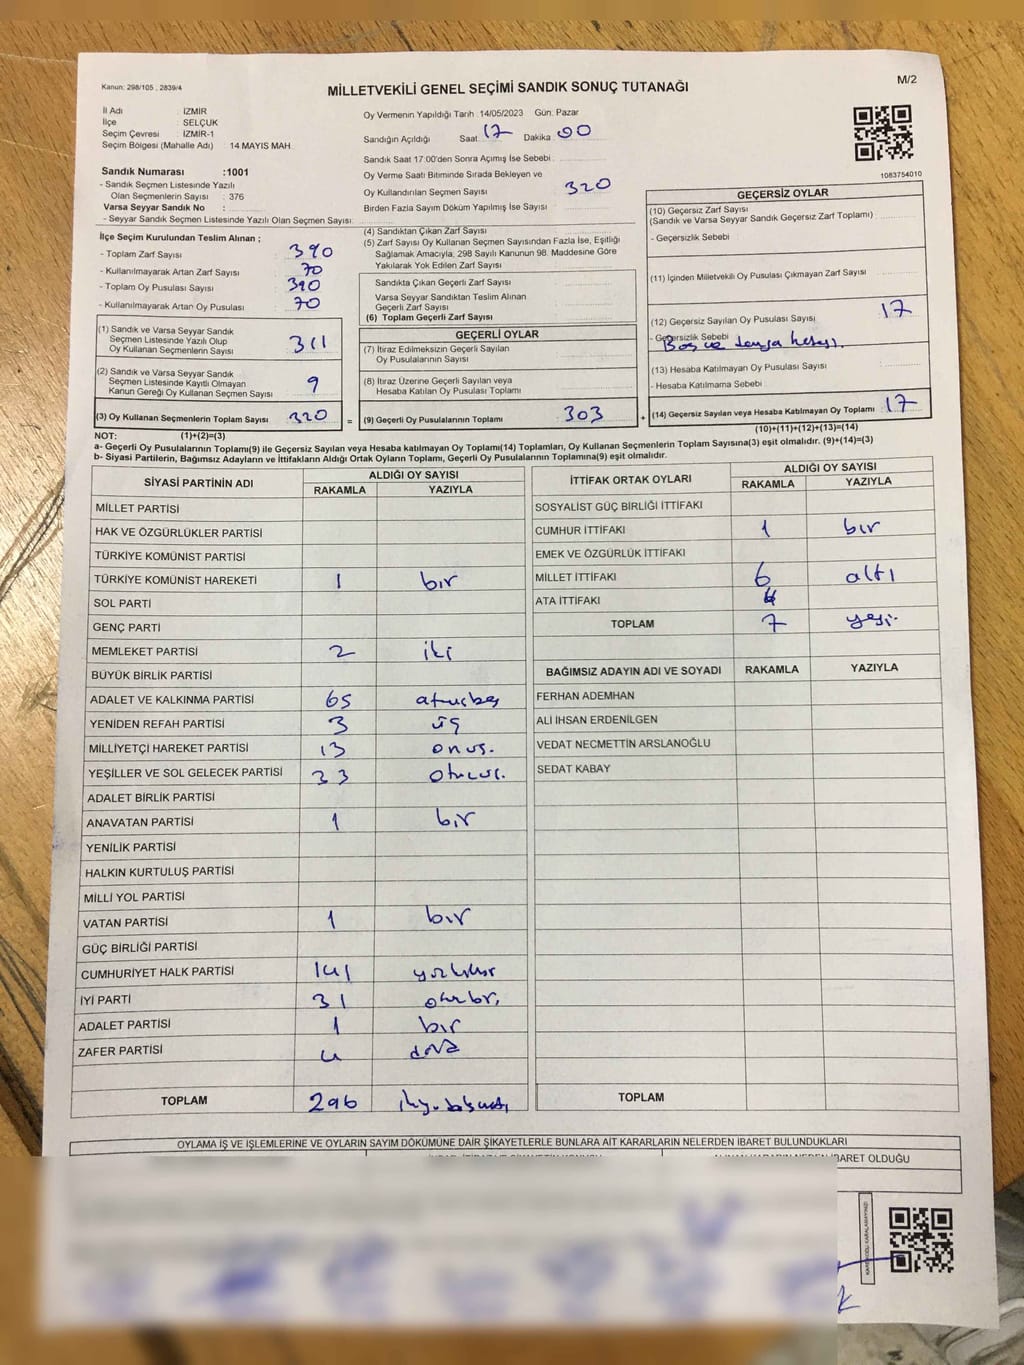 Kanun: 298/105 , 2839/4
M/2
MİLLETVEKİLİ GENEL SEÇİMİ SANDIK SONUÇ TUTANAĞI
İl Adı : İZMİR
İlçe : SELÇUK
Seçim Çevresi : İZMİR-1
Seçim Bölgesi (Mahalle Adı) 14 MAYIS MAH.
Oy Vermenin Yapıldığı Tarih :14/05/2023 Gün: Pazar
Sandığın Açıldığı Saat: 17 Dakika: 00
Sandık Saat 17:00'den Sonra Açımış İse Sebebi :
Oy Verme Saati Bitiminde Sırada Bekleyen ve
Oy Kullandırılan Seçmen Sayısı 320
Birden Fazla Sayım Döküm Yapılmış İse Sayısı :
1083754010
Sandık Numarası :1001
- Sandık Seçmen Listesinde Yazılı
Olan Seçmenlerin Sayısı : 376
Varsa Seyyar Sandık No :
- Seyyar Sandık Seçmen Listesinde Yazılı Olan Seçmen Sayısı:
İlçe Seçim Kurulundan Teslim Alınan ;
- Toplam Zarf Sayısı 390
- Kullanılmayarak Artan Zarf Sayısı 70
- Toplam Oy Pusulası Sayısı 390
- Kullanılmayarak Artan Oy Pusulası 70
(1) Sandık ve Varsa Seyyar Sandık
Seçmen Listesinde Yazılı Olup
Oy Kullanan Seçmenlerin Sayısı 311
(2) Sandık ve Varsa Seyyar Sandık
Seçmen Listesinde Kayıtlı Olmayan
Kanun Gereği Oy Kullanan Seçmen Sayısı 9
(3) Oy Kullanan Seçmenlerin Toplam Sayısı 320 =
(4) Sandıktan Çıkan Zarf Sayısı
(5) Zarf Sayısı Oy Kullanan Seçmen Sayısından Fazla İse, Eşitliği
Sağlamak Amacıyla; 298 Sayılı Kanunun 98. Maddesine Göre
Yakılarak Yok Edilen Zarf Sayısı
Sandıkta Çıkan Geçerli Zarf Sayısı
Varsa Seyyar Sandıktan Teslim Alınan
Geçerli Zarf Sayısı
(6) Toplam Geçerli Zarf Sayısı
GEÇERLİ OYLAR
(7) İtiraz Edilmeksizin Geçerli Sayılan
Oy Pusulalarının Sayısı
(8) İtiraz Üzerine Geçerli Sayılan veya
Hesaba Katılan Oy Pusulası Toplamı
(9) Geçerli Oy Pusulalarının Toplamı 303 +
GEÇERSİZ OYLAR
(10) Geçersiz Zarf Sayısı
(Sandık ve Varsa Seyyar Sandık Geçersiz Zarf Toplamı)
- Geçersizlik Sebebi :
(11) İçinden Milletvekili Oy Pusulası Çıkmayan Zarf Sayısı
(12) Geçersiz Sayılan Oy Pusulası Sayısı 17
- Geçersizlik Sebebi : Boş ve
(13) Hesaba Katılmayan Oy Pusulası Sayısı
- Hesaba Katılmama Sebebi
(14) Geçersiz Sayılan veya Hesaba Katılmayan Oy Toplamı 17
(10)+(11)+(12)+(13)=(14)
NOT: (1)+(2)=(3)
a- Geçerli Oy Pusulalarının Toplamı(9) ile Geçersiz Sayılan veya Hesaba katılmayan Oy Toplamı(14) Toplamları, Oy Kullanan Seçmenlerin Toplam Sayısına(3) eşit olmalıdır. (9)+(14)=(3)
b- Siyasi Partilerin, Bağımsız Adayların ve İttifakların Aldığı Ortak Oyların Toplamı, Geçerli Oy Pusulalarının Toplamına(9) eşit olmalıdır.
SİYASİ PARTİNİN ADI ALDIĞI OY SAYISI
RAKAMLA YAZIYLA
MİLLET PARTİSİ
HAK VE ÖZGÜRLÜKLER PARTİSİ
TÜRKİYE KOMÜNİST PARTİSİ
TÜRKİYE KOMÜNİST HAREKETİ 1 bir
SOL PARTİ
GENÇ PARTİ
MEMLEKET PARTİSİ 2 iki
BÜYÜK BİRLİK PARTİSİ
ADALET VE KALKINMA PARTİSİ 65 atmışbeş
YENİDEN REFAH PARTİSİ 3 üç
MİLLİYETÇİ HAREKET PARTİSİ 13 onüç.
YEŞİLLER VE SOL GELECEK PARTİSİ 33 otuzüç.
ADALET BİRLİK PARTİSİ
ANAVATAN PARTİSİ 1 bir
YENİLİK PARTİSİ
HALKIN KURTULUŞ PARTİSİ
MİLLİ YOL PARTİSİ
VATAN PARTİSİ 1 bir
GÜÇ BİRLİĞİ PARTİSİ
CUMHURİYET HALK PARTİSİ 141
İYİ PARTİ 31 otuzbir
ADALET PARTİSİ 1 bir
ZAFER PARTİSİ 4 dört
TOPLAM 296
İTTİFAK ORTAK OYLARI ALDIĞI OY SAYISI
RAKAMLA YAZIYLA
SOSYALİST GÜÇ BİRLİĞİ İTTİFAKI
CUMHUR İTTİFAKI 1 bir
EMEK VE ÖZGÜRLÜK İTTİFAKI
MİLLET İTTİFAKI 6 altı
ATA İTTİFAKI
TOPLAM 7 yedi
BAĞIMSIZ ADAYIN ADI VE SOYADI RAKAMLA YAZIYLA
FERHAN ADEMHAN
ALİ İHSAN ERDENİLGEN
VEDAT NECMETTİN ARSLANOĞLU
SEDAT KABAY
TOPLAM
OYLAMA İŞ VE İŞLEMLERİNE VE OYLARIN SAYIM DÖKÜMÜNE DAİR ŞİKAYETLERLE BUNLARA AİT KARARLARIN NELERDEN İBARET BULUNDUKLARI
İBARET OLDUĞU